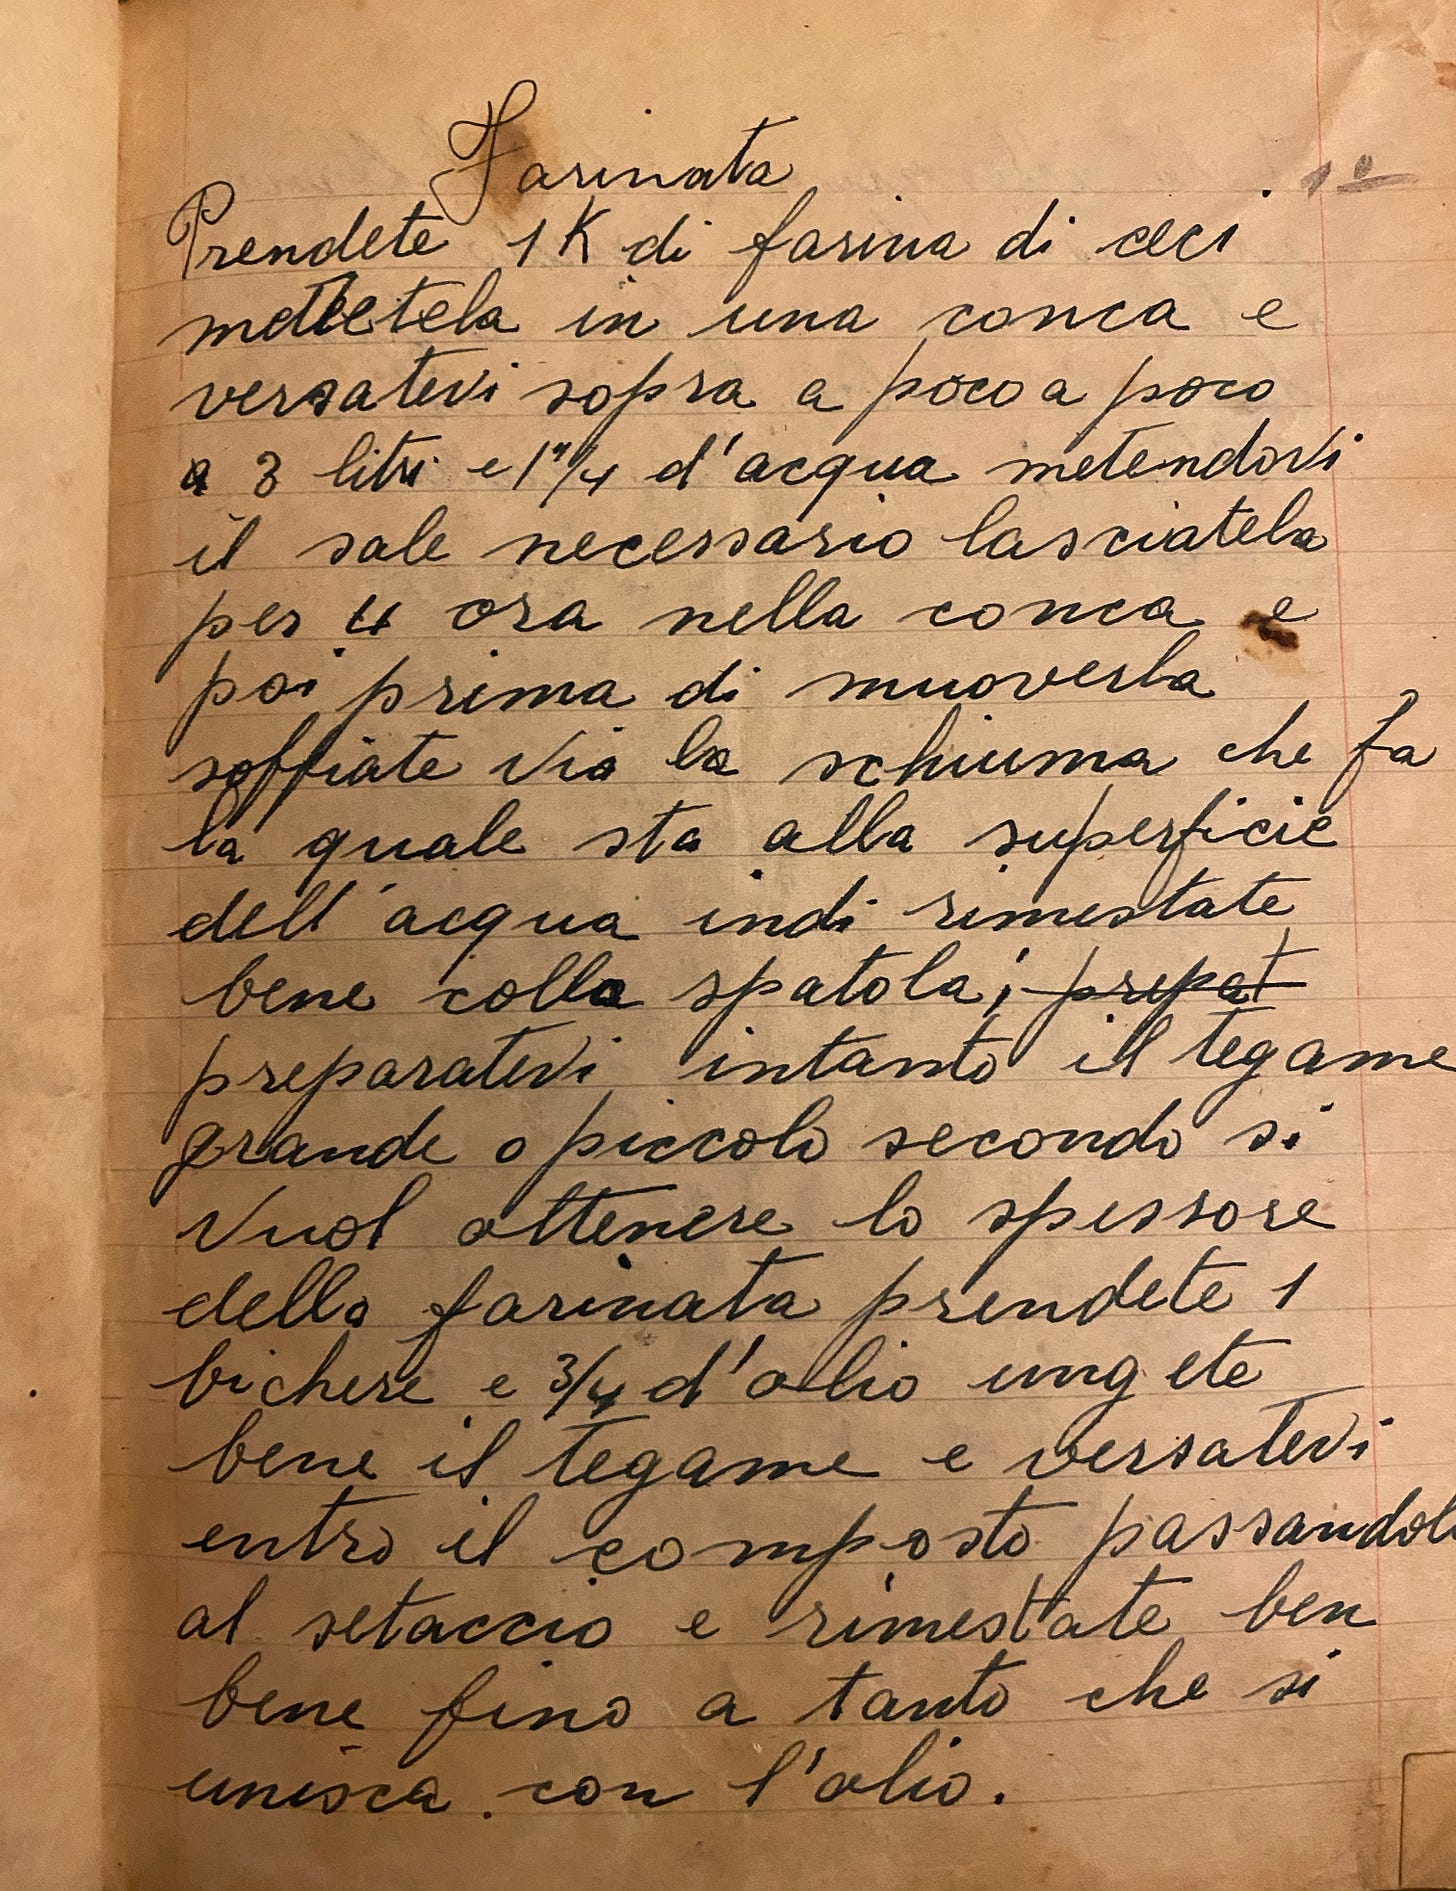 Farinata
1º
Prendete 1 K di farina di ceci
mettetela in una conca e
versatevi sopra a poco a poco
a 3 litri e 1/4 d'acqua metendovi
il sale necessario lasciatela
per 4 ora nella conca e
poi prima di muoverla
soffiate via la schiuma che fa
la quale sta alla superficie
dell'acqua indi rimestate
bene colla spatola; prepat
preparatevi intanto il tegame
grande o piccolo secondo si
vuol ottenere lo spessore
della farinata prendete 1
bichere e 3/4 d'olio ungete
bene il tegame e versatevi
entro il composto passandol
al setaccio e rimestate ben
bene fino a tanto che si
unisca con l'olio.